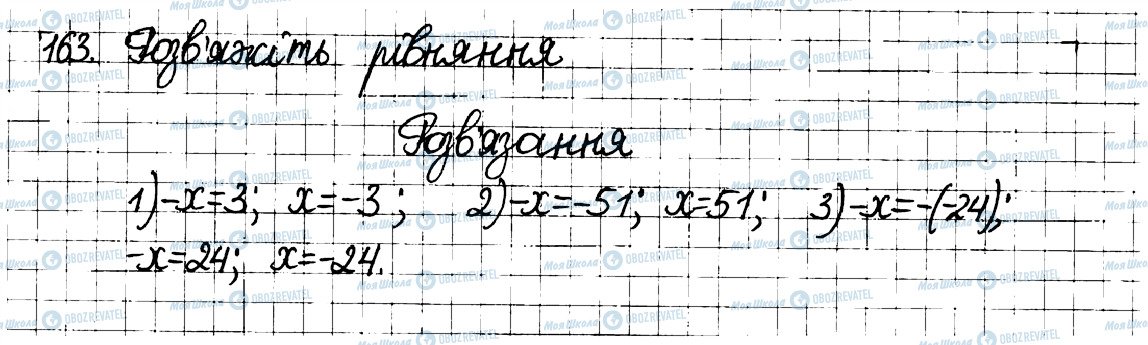 163. Розв'яжіть рівняння
Розв'язання
1) -x=3; x=-3; 2) -x=-51; x=51; 3) -x=-(-24);
-x=24; x=-24.